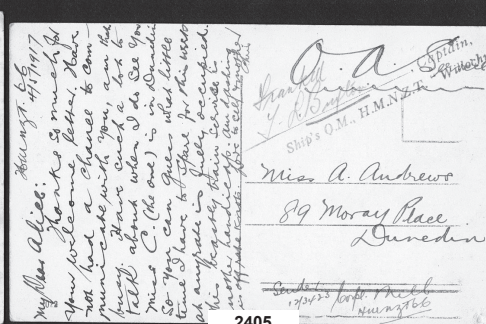 Hmnzt. 66
4/5/1917
My Dear Alice:
Thanks so much for
your welcome letter. Have
not had a chance to com-
municate with you, am that
busy. Have such a lot to
talk about when I do see you
Miss C (the one) is in Dunedin
So you can guess what little
time I have to spare for this week
at anyrate is fully occupied.
this beastly train service is
another handicap, landing
O. A. S.
Captain,
Franked
Ship's Q.M., H.M.N.Z.T.
Miss A. Andrews
89 Moray Place
Dunedin
Sender:
Corpl. Mill
Hmnzt 66
2405